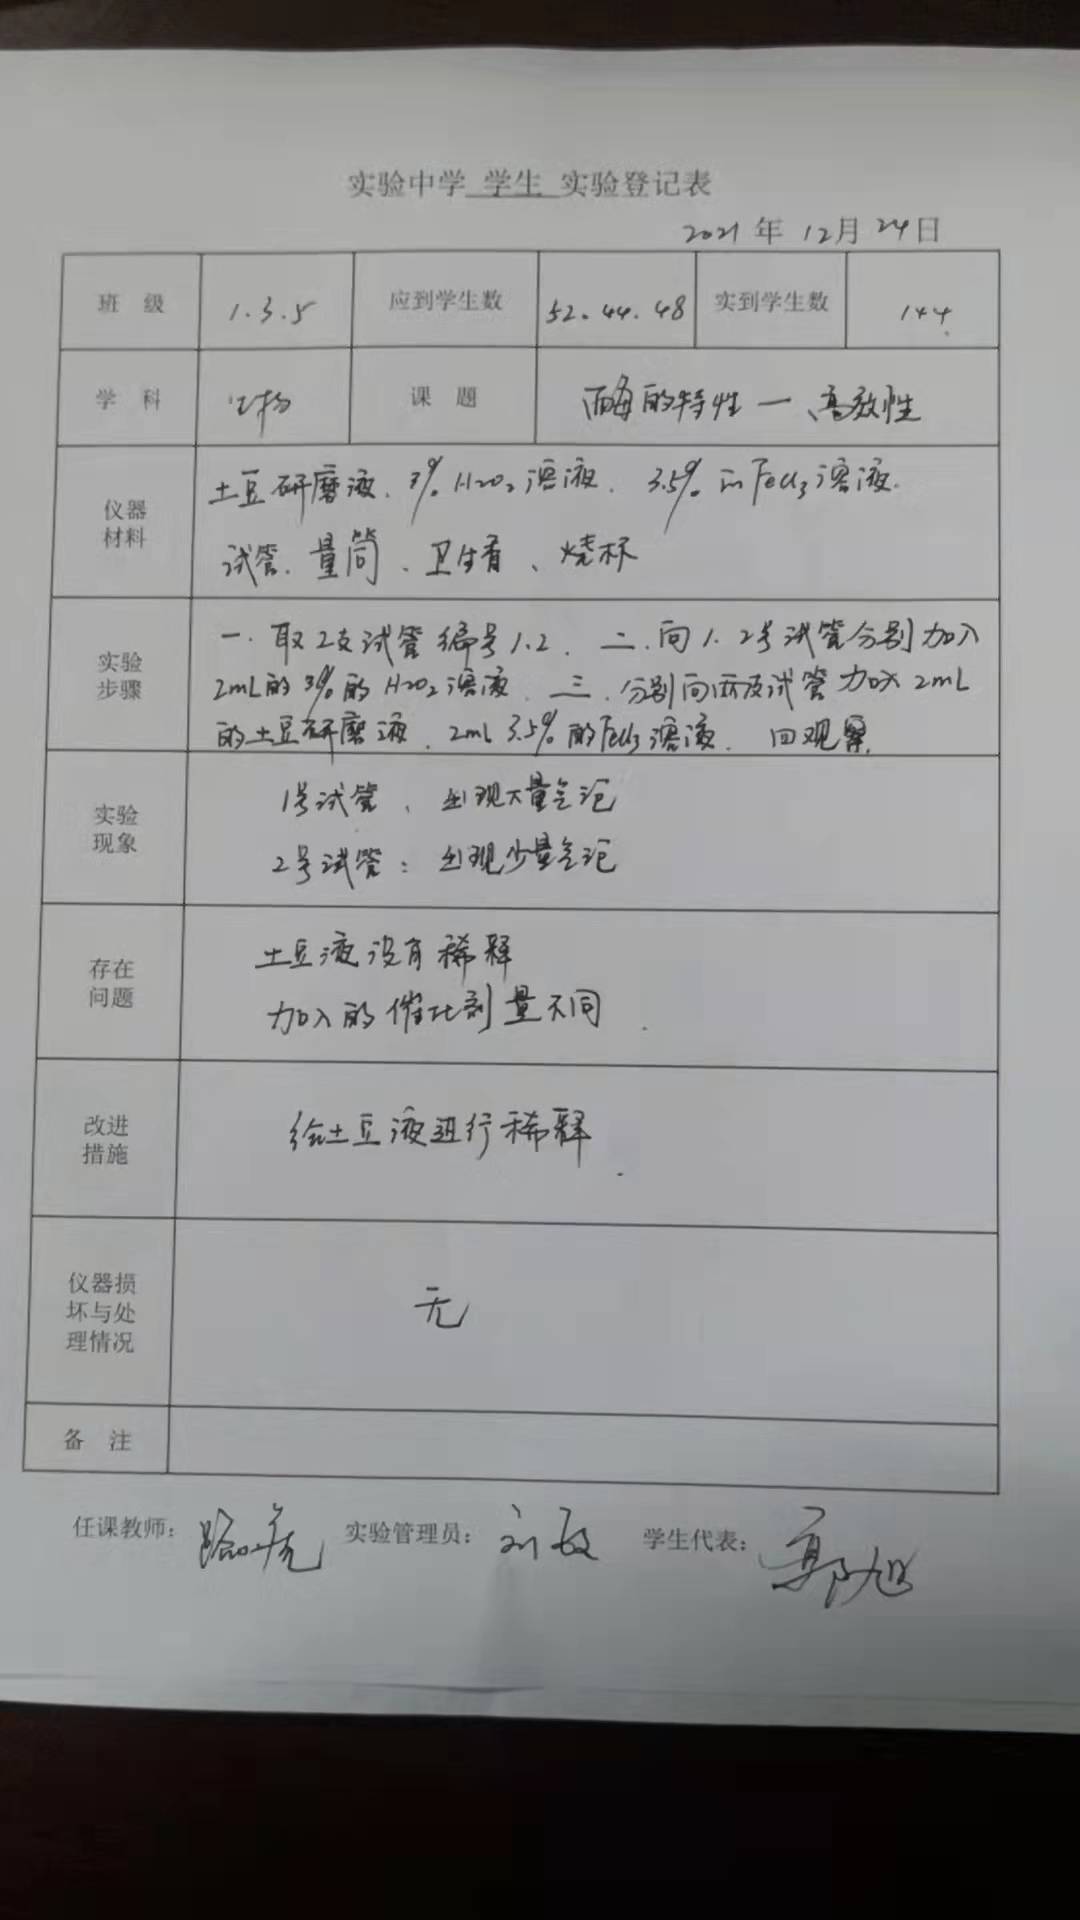 实验中学 学生 实验登记表
2021 年 12月 24日
班 级 1.3.5 应到学生数 52.44.48 实到学生数 144
学 科 生物 课 题 酶的特性一高效性
仪器
材料
土豆研磨液、3% H2O2溶液、3.5% 的FeCl3溶液.
试管、量筒、卫生香、烧杯
实验
步骤
一.取2支试管编号1.2. 二.向1.2号试管分别加入
2mL的3%的H2O2溶液. 三.分别向两支试管加入2mL
的土豆研磨液、2mL 3.5%的FeCl3溶液. 四观察
实验
现象
1号试管、出现大量气泡
2号试管：出现少量气泡
存在
问题
土豆液没有稀释
加入的催化剂量不同.
改进
措施
给土豆液进行稀释.
仪器损
坏与处
理情况
无
备 注
任课教师： 实验管理员：刘敏 学生代表：郭旭